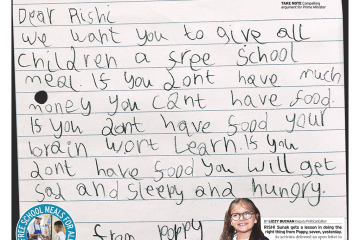 TAKE NOTE Compelling
argument for Prime Minister
Dear Rishi
we want you to give all
children a free school
meal. If you dont have much
money you cant have food.
If you dont have food your
brain wont learn. If you
dont have food you will get
sad and sleepy and hungry.
from poppy
FREE SCHOOL MEALS FOR ALL
BY LIZZY BUCHAN Deputy Political Editor
RISHI Sunak gets a lesson in doing the
right thing from Poppy, seven, yesterday.
As activists delivered an open letter to